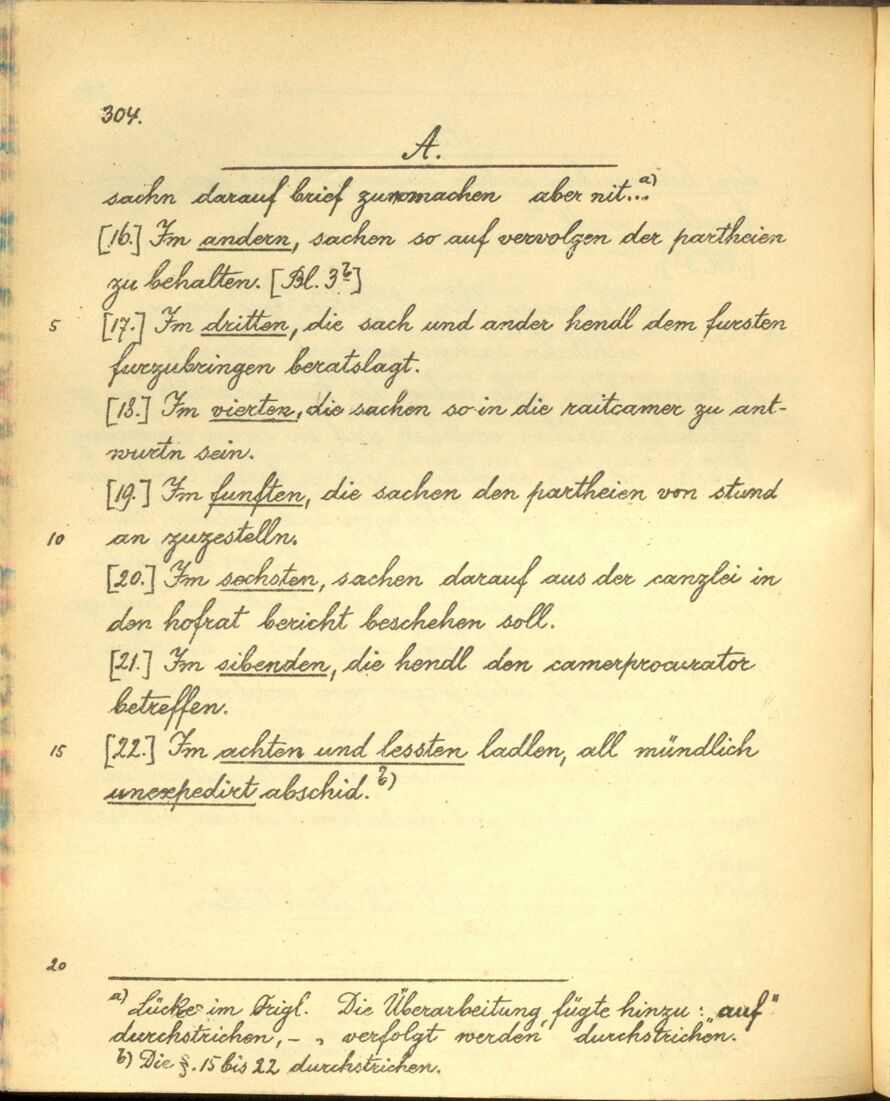 304.
A.
sachn darauf brief zu machen aber nit...a)
[16.] Im andern, sachen so auf vervolgen der partheien
zu behalten. [Bl. 3b]
5 [17.] Im dritten, die sach und ander hendl dem fursten
furzubringen beratslagt.
[18.] Im vierten, die sachen so in die raitcamer zu ant-
wurtn sein.
[19.] Im funften, die sachen den partheien von stund
10 an zuzestelln.
[20.] Im sechsten, sachen darauf aus der canzlei in
den hofrat bericht beschehen soll.
[21.] Im sibenden, die hendl den camerprocurator
betreffen.
15 [22.] Im achten und lessten ladlen, all mündlich
unexpedirt abschid. b)
20
a) Lücke im Origl. Die Überarbeitung fügte hinzu: „auf"
durchstrichen, - „ verfolgt werden" durchstrichen.
b) Die §. 15 bis 22 durchstrichen.